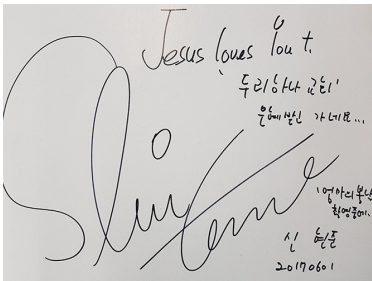 Jesus loves You t.
두리하나 교회!
은혜 받고 가네요...
'엄마의 봄날'
촬영중에.
신 현준
20170601